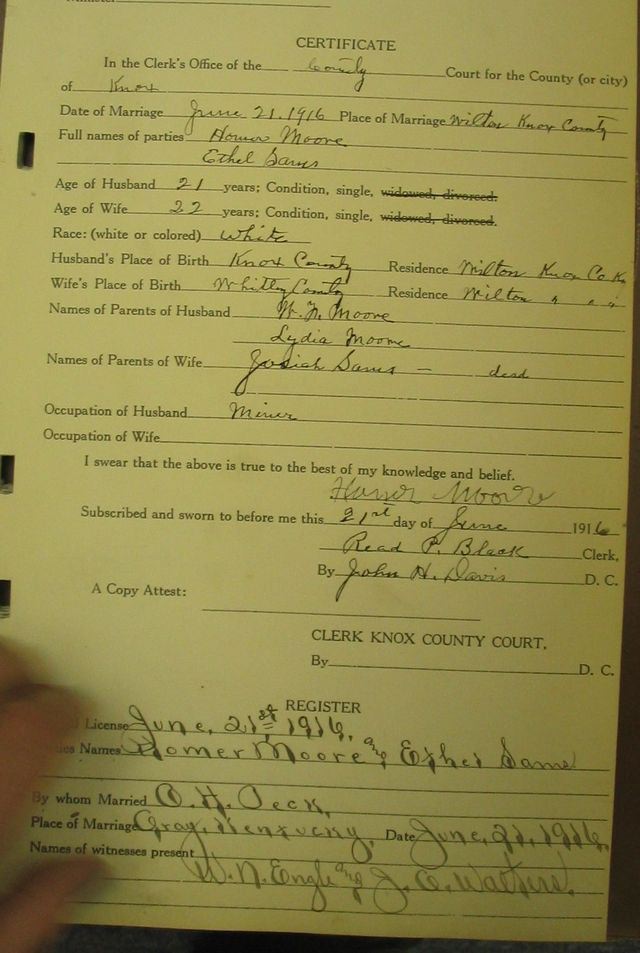 CERTIFICATE
In the Clerk's Office of the County Court for the County (or city)
of Knox
Date of Marriage June 21, 1916 Place of Marriage Wilton Knox County
Full names of parties Homer Moore
Ethel Sams
Age of Husband 21 years; Condition, single, widowed, divorced.
Age of Wife 22 years; Condition, single, widowed, divorced.
Race: (white or colored) White
Husband's Place of Birth Knox County Residence Wilton Knox Co Ky
Wife's Place of Birth Whitley County Residence Wilton " " "
Names of Parents of Husband Moore
Lydia Moore
Names of Parents of Wife Josiah Sams — dead
Occupation of Husband Miner
Occupation of Wife
I swear that the above is true to the best of my knowledge and belief.
Homer Moore
Subscribed and sworn to before me this 21st day of June 1916
Read P. Black Clerk.
By John H. Davis D. C.
A Copy Attest:
CLERK KNOX COUNTY COURT.
By D. C.
REGISTER
License June, 21st 1916,
Names Homer Moore and Ethel Sams
By whom Married O. H. Peck,
Place of Marriage Gray, Kentucky, Date June, 21, 1916,
Names of witnesses present
W. N. Engle and J. C. Watters.